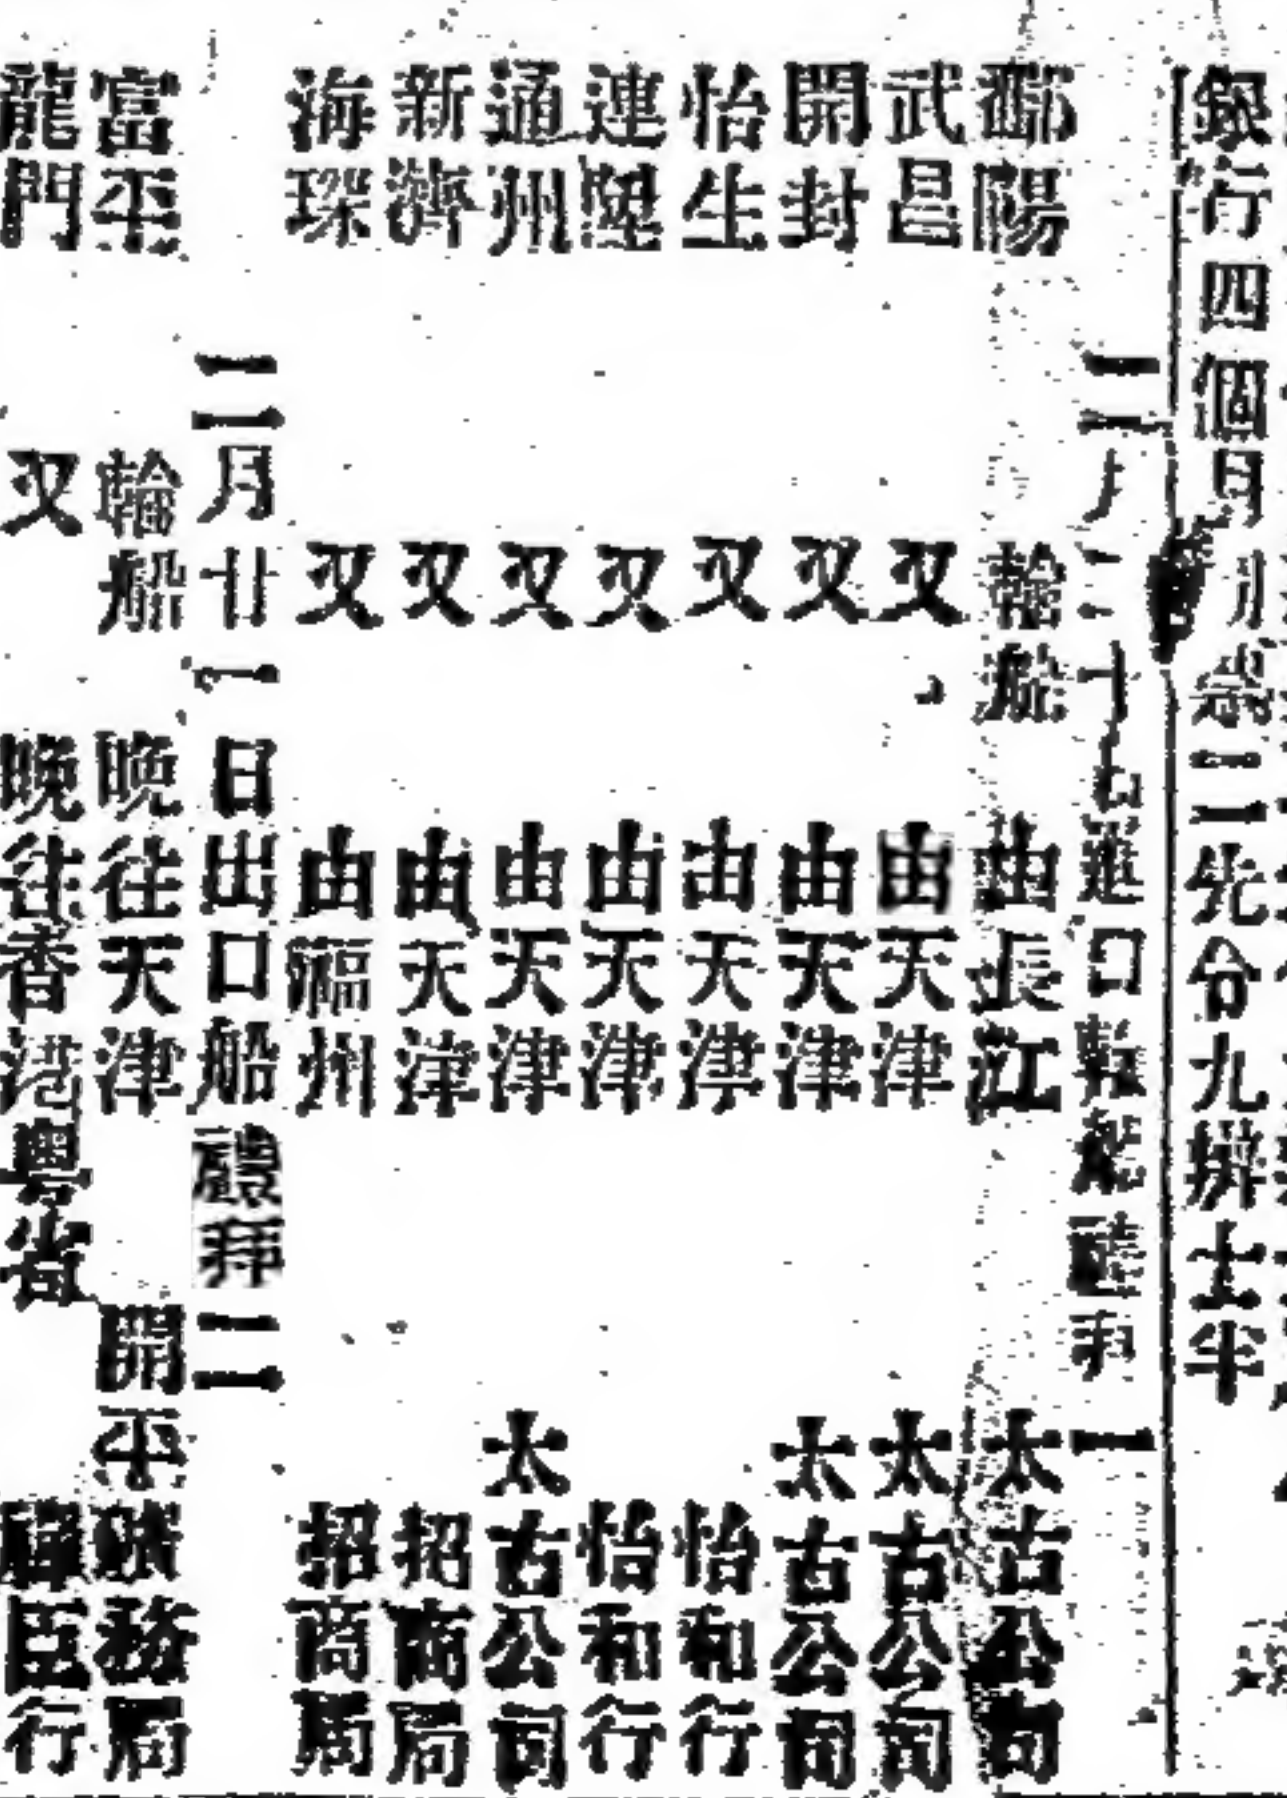 銀行四個月 票二先令九辨士半
二月二十七進口輪船禮拜一
鄱陽 輪船 由長江 太古公司
武昌 又 由天津 太古公司
開封 又 由天津 太古公司
怡生 又 由天津 怡和行
連陞 又 由天津 怡和行
通州 又 由天津 太古公司
新濟 又 由天津 招商局
海琛 又 由福州 招商局
二月廿一日出口船禮拜二
富平 輪船 晚往天津 開平礦務局
龍門 又 晚往香港粤省 禪臣行